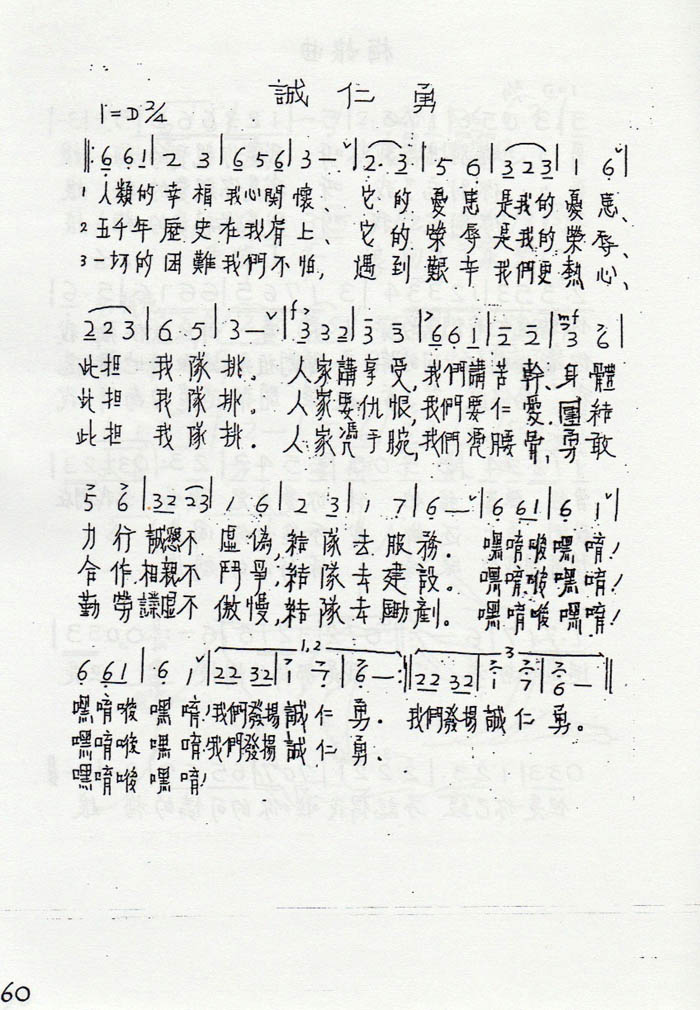 誠仁勇
1=D 2/4
‖: 6 6 1 | 2 3 | 6 5 6 | 3 — | 2. 3. | 5 6 | 3 2 3 | 1 6 |
1 人類的幸福我心關懷、它的憂患是我的憂患、
2 五千年歷史在我肩上、它的榮辱是我的榮辱、
3 一切的困難我們不怕，遇到艱辛我們更熱心、
2 2 3 | 6 5 | 3 — | f 3 3 2 | 3 3 | 6 6 1 | 2 2 | mf 3 6 |
此担 我隊挑．人家講享受，我們講苦幹、身體
此担 我隊挑．人家要仇恨，我們要仁愛．團結
此担 我隊挑．人家凴手腕，我們凴腰骨．勇敢
5 6 | 3 2 2 3 | 1 6 | 2 3 | 1 7 | 6 — | 6 6 1 | 6 1 |
力行 誠懇不 虛偽，結隊去服務．嘿唷唆嘿唷！
合作．相親不 鬥爭，結隊去建設．嘿唷唆嘿唷！
勤勞謙虛不 傲慢，結隊去勵剷．嘿唷唆嘿唷！
1,2 3
6 6 1 | 6 1 | 2 2 3 2 | 1 7 | 6 — :‖ 2 2 3 2 | 1 7 | 6 — |
嘿唷唆嘿唷！我們發揚誠仁勇．我們發揚誠仁勇。
嘿唷唆嘿唷！我們發揚誠仁勇．
嘿唷唆嘿唷！
60